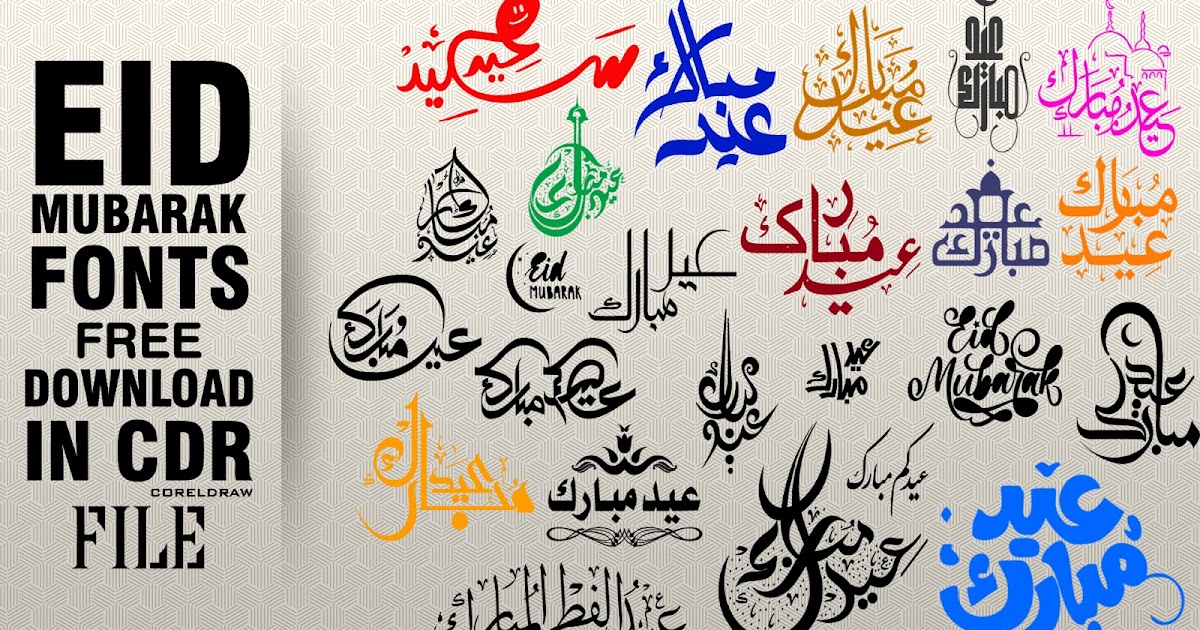 EID
MUBARAK
FONTS
FREE
DOWNLOAD
IN CDR
CORELDRAW
FILE
عيد سعيد
عيد مبارك
عيد مبارك
عيد مبارك
عيد مبارك
عيد مبارك
عيد مبارك
عيد مبارك
عيد مبارك
عيد مبارك
عيد مبارك
Eid
MUBARAK
عيد مبارك
عيد مبارك
عيدكم مبارك
عيد مبارك
عيد مبارك
Eid
Mubarak
عيد مبارك
عيد مبارك
عيد مبارك
عيدكم مبارك
عيد مبارك
عيد مبارك
عيد الفطر المبارك